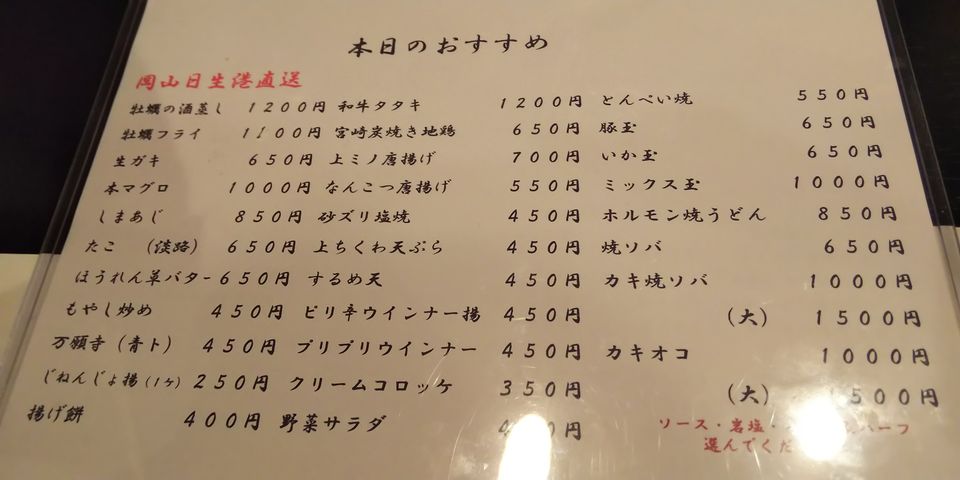 本日のおすすめ
岡山日生港直送
牡蠣の酒蒸し 1200円 和牛タタキ 1200円 とんぺい焼 550円
牡蠣フライ 1100円 宮崎炭焼き地鶏 650円 豚玉 650円
生ガキ 650円 上ミノ唐揚げ 700円 いか玉 650円
本マグロ 1000円 なんこつ唐揚げ 550円 ミックス玉 1000円
しまあじ 850円 砂ズリ塩焼 450円 ホルモン焼うどん 850円
たこ (淡路) 650円 上ちくわ天ぷら 450円 焼ソバ 650円
ほうれん草バター 650円 するめ天 450円 カキ焼ソバ 1000円
もやし炒め 450円 ピリ辛ウインナー揚 450円 (大) 1500円
万願寺(青ト) 450円 プリプリウインナー 450円 カキオコ 1000円
じねんじょ揚(1ヶ) 250円 クリームコロッケ 350円 (大) 1500円
揚げ餅 400円 野菜サラダ 円
ソース・岩塩・ハーフ
選んでくだ